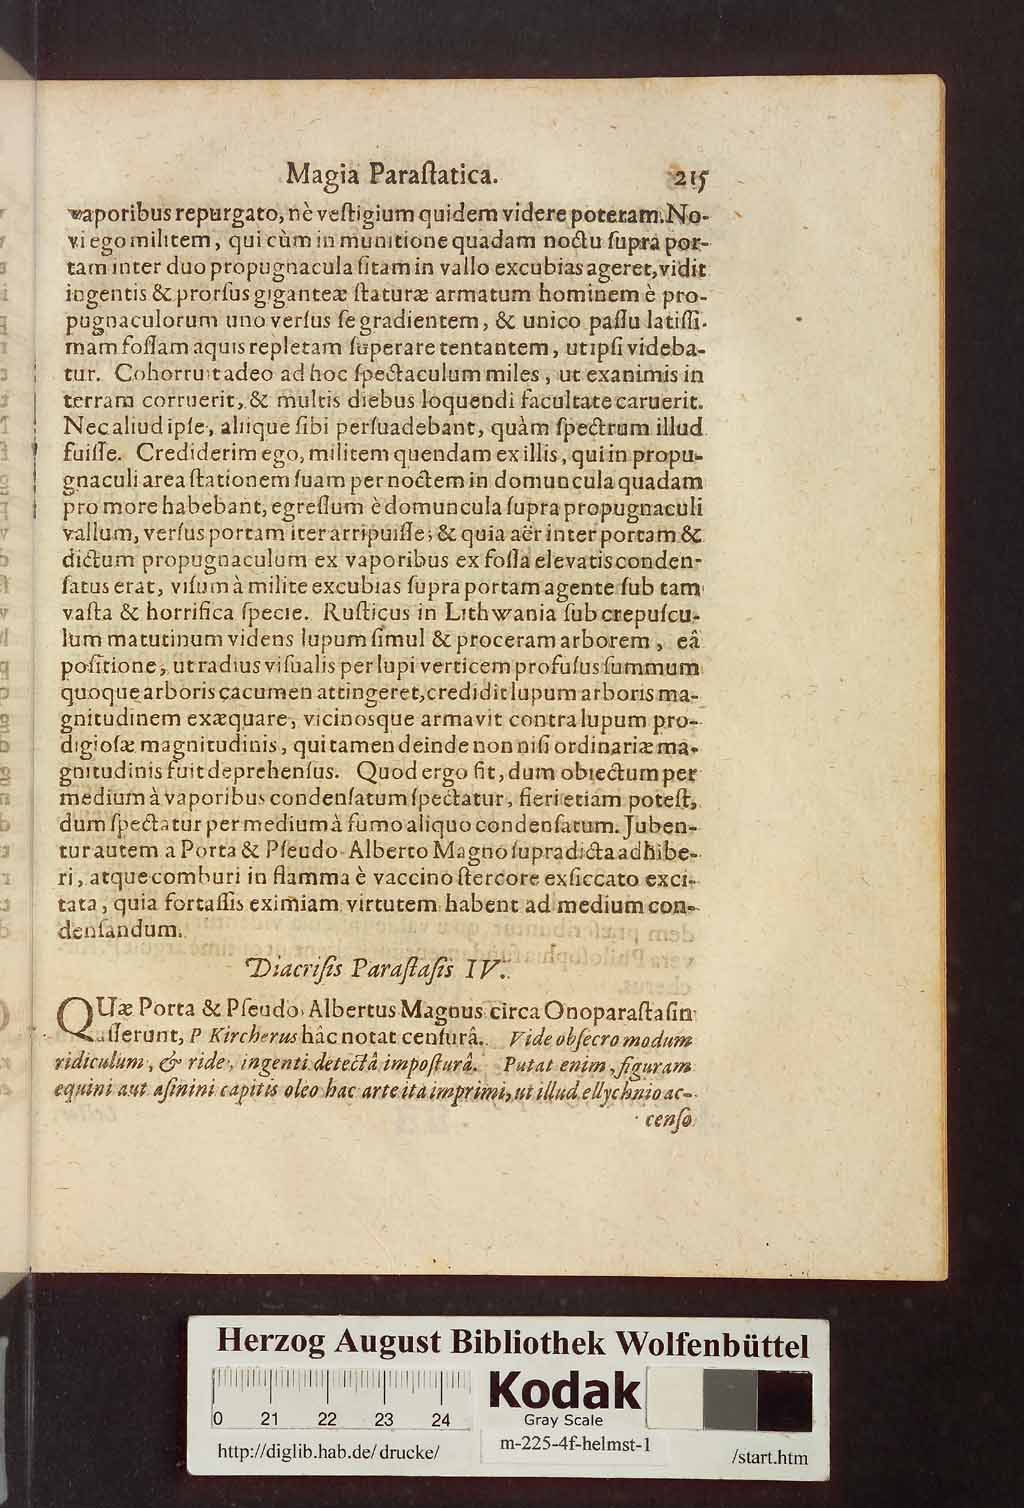 Magia Paraſtatica. 215
vaporibus repurgato, nè veſtigium quidem videre poteram. No-
vi ego militem, qui cùm in munitione quadam noctu ſupra por-
tam inter duo propugnacula ſitam in vallo excubias ageret, vidit
ingentis & prorſus giganteæ ſtaturæ armatum hominem è pro-
pugnaculorum uno verſus ſe gradientem, & unico paſſu latiſſi-
mam foſſam aquis repletam ſuperare tentantem, ut ipſi videba-
tur. Cohorruit adeo ad hoc ſpectaculum miles, ut exanimis in
terram corruerit, & multis diebus loquendi facultate caruerit.
Nec aliud ipſe, aliique ſibi perſuadebant, quàm ſpectrum illud
fuiſſe. Crediderim ego, militem quendam ex illis, qui in propu-
gnaculi area ſtationem ſuam per noctem in domuncula quadam
pro more habebant, egreſſum è domuncula ſupra propugnaculi
vallum, verſus portam iter arripuiſſe; & quia aër inter portam &
dictum propugnaculum ex vaporibus ex foſſa elevatis conden-
ſatus erat, viſum à milite excubias ſupra portam agente ſub tam
vaſta & horrifica ſpecie. Ruſticus in Lithwania ſub crepuſcu-
lum matutinum videns lupum ſimul & proceram arborem, eâ
poſitione, ut radius viſualis per lupi verticem profuſus ſummum
quoque arboris cacumen attingeret, credidit lupum arboris ma-
gnitudinem exæquare, vicinosque armavit contra lupum pro-
digioſæ magnitudinis, qui tamen deinde non niſi ordinariæ ma-
gnitudinis fuit deprehenſus. Quod ergo fit, dum obiectum per
medium à vaporibus condenſatum ſpectatur, fieri etiam poteſt,
dum ſpectatur per medium à fumo aliquo condenſatum. Juben-
tur autem a Porta & Pſeudo-Alberto Magno ſupradicta adhibe-
ri, atque comburi in flamma è vaccino ſtercore exſiccato exci-
tata, quia fortaſſis eximiam virtutem habent ad medium con-
denſandum.
Diacriſis Paraſtaſis IV.
QUæ Porta & Pſeudo-Albertus Magnus circa Onoparaſtaſin
aſſerunt, P Kircherus hâc notat cenſurâ. Vide obſecro modum
ridiculum, & ride, ingenti detectâ impoſturâ. Putat enim, figuram
equini aut aſinini capitis oleo hac arte ita imprimi, ut illud ellychnio ac-
cenſo
Herzog August Bibliothek Wolfenbüttel
0 21 22 23 24
Kodak
Gray Scale
http://diglib.hab.de/drucke/
m-225-4f-helmst-1
/start.htm